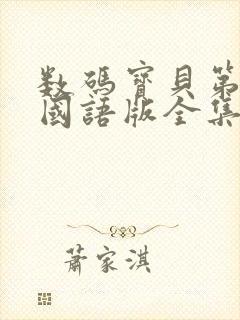 数碼寶貝第
國語版全集
蕭家淇